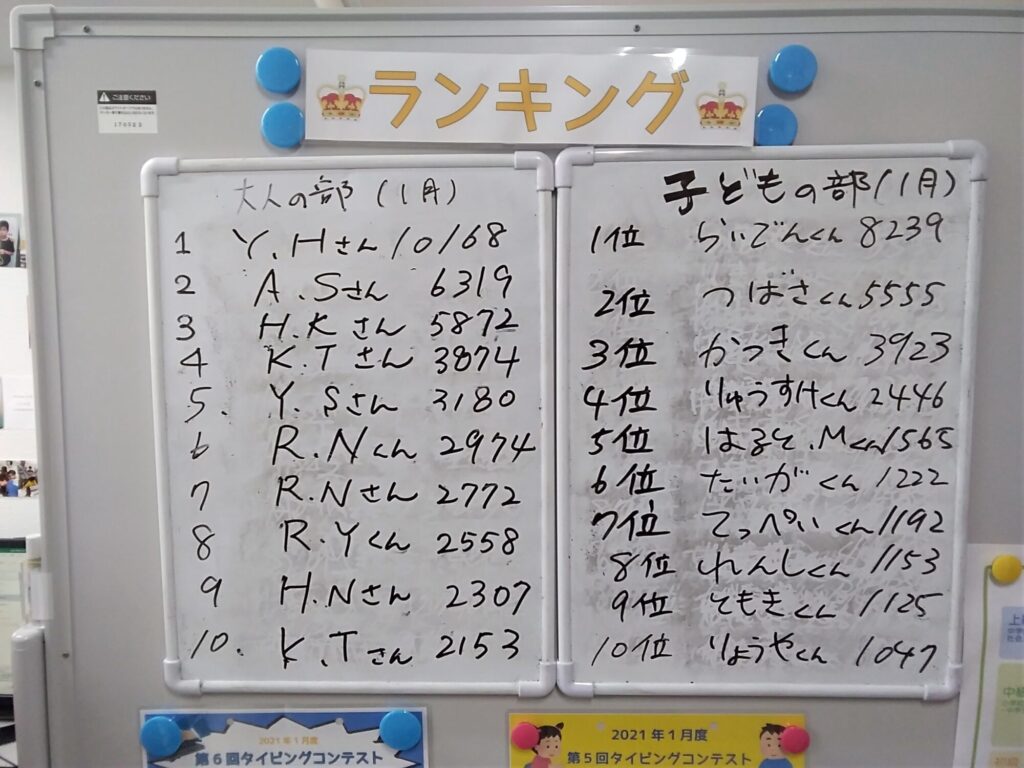 ランキング
ご注意ください
大人の部 (1月)
1 Y.Hさん 10168
2 A.Sさん 6319
3 H.Kさん 5872
4 K.Tさん 3874
5. Y.Sさん 3180
6 R.Nくん 2974
7 R.Nさん 2772
8 R.Yくん 2558
9 H.Nさん 2307
10. K.Tさん 2153
子どもの部 (1月)
1位 らいでんくん 8239
2位 つばさくん 5555
3位 かつきくん 3923
4位 りゅうすけくん 2446
5位 はると.Mくん 1565
6位 たいがくん 1222
7位 てっぺいくん 1192
8位 れんしくん 1153
9位 ともきくん 1125
10位 りょうやくん 1047
2021年1月度
第6回タイピングコンテスト
2021年1月度
第5回タイピングコンテスト